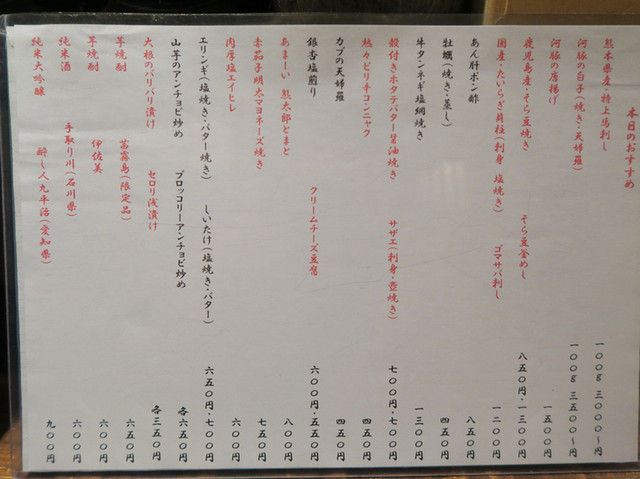 本日のおすすめ
熊本県産・特上馬刺し 一〇〇g 三〇〇〇〜円
河豚の白子(焼き・天婦羅) 一〇〇g 三五〇〇〜円
河豚の唐揚げ 一五〇〇円
鹿児島産・そら豆焼き そら豆釜めし 八五〇円・一三〇〇円
国産・たいらぎ貝柱(刺身 塩焼き) ゴマサバ刺し 一二〇〇円
あん肝ポン酢 八五〇円
牡蠣(焼き・蒸し) 四五〇円
牛タンネギ塩網焼き 一三〇〇円
殻付きホタテバター醤油焼き サザエ(刺身・壺焼き) 七〇〇円・七〇〇円
熱々ピリ辛コンニャク 四五〇円
カブの天婦羅 四五〇円
銀杏塩煎り クリームチーズ豆腐 六〇〇円・五五〇円
あまーい 熊太郎とまと 八〇〇円
赤茄子明太マヨネーズ焼き 七五〇円
肉厚塩エイヒレ 六〇〇円
エリンギ(塩焼き・バター焼き) しいたけ(塩焼き・バター) 六五〇円・七〇〇円
山芋のアンチョビ炒め ブロッコリーアンチョビ炒め 各六五〇円
大根のパリパリ漬け セロリ浅漬け 各三五〇円
芋焼酎 茜霧島(限定品) 六五〇円
芋焼酎 伊佐美 六〇〇円
純米酒 手取り川(石川県) 六〇〇円
純米大吟醸 醉し人九平治(愛知県) 九〇〇円